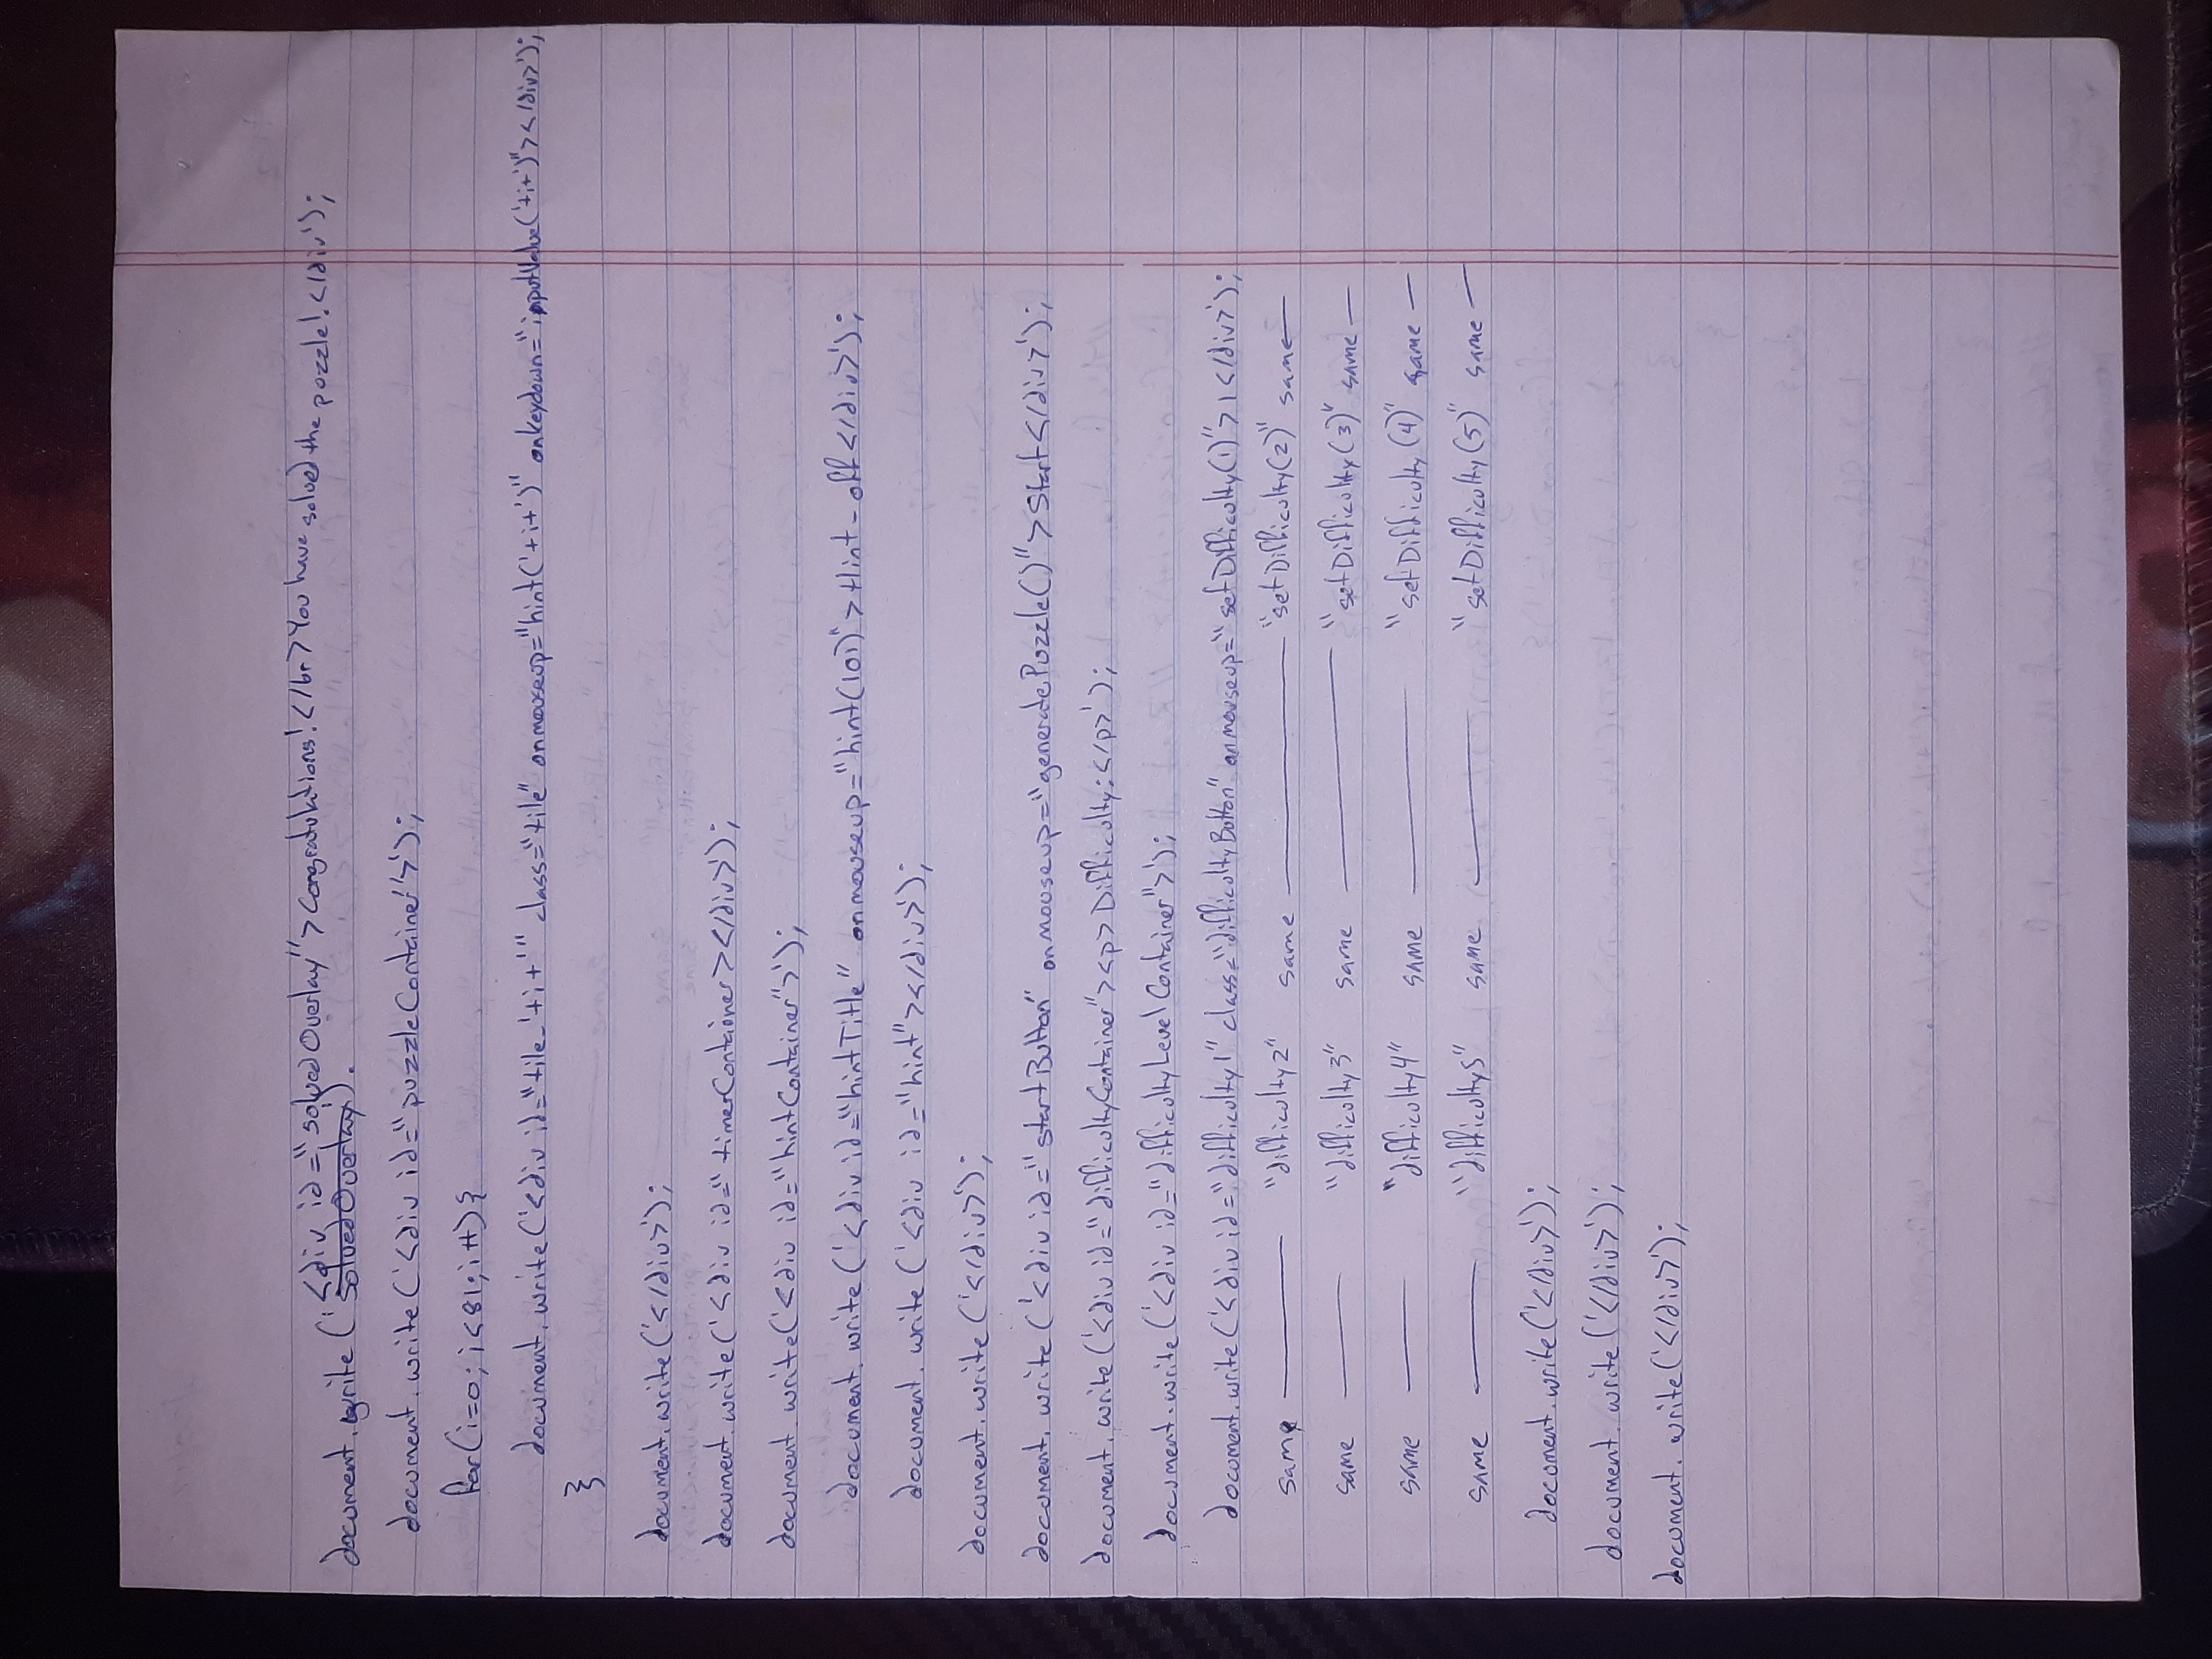 <div id="solvedOverlay">Congratulations!</br>You have solved the puzzle!</div>');
document.write('solvedOverlay').
document.write('<div id="puzzleContainer">');
for(i=0; i<81; i++){
document.write('<div id="tile_'+i+'" class="tile" onmouseup="hint('+i+')" onkeydown="inputValue('+i+')"></div>');
}
document.write('</div>');
document.write('<div id="timerContainer></div>');
document.write('<div id="hintContainer">');
document.write('<div id="hintTitle" onmouseup="hint(101)">Hint - off</div>');
document.write('<div id="hint"></div>');
document.write('</div>');
document.write('<div id="startButton" onmouseup="generatePuzzle()">Start</div>');
document.write('<div id="difficultyContainer"><p>Difficulty:</p>');
document.write('<div id="difficultyLevelContainer">');
document.write('<div id="difficulty1" class="difficultyButton" onmouseup="setDifficulty(1)">1</div>');
same —— "difficulty2" same —— "setDifficulty(2)" same —
same —— "difficulty3" same —— "setDifficulty(3)" same —
same —— "difficulty4" same —— "setDifficulty(4)" same —
same —— "difficulty5" same —— "setDifficulty(5)" same —
document.write('</div>');
document.write('</div>');
document.write('</div>');